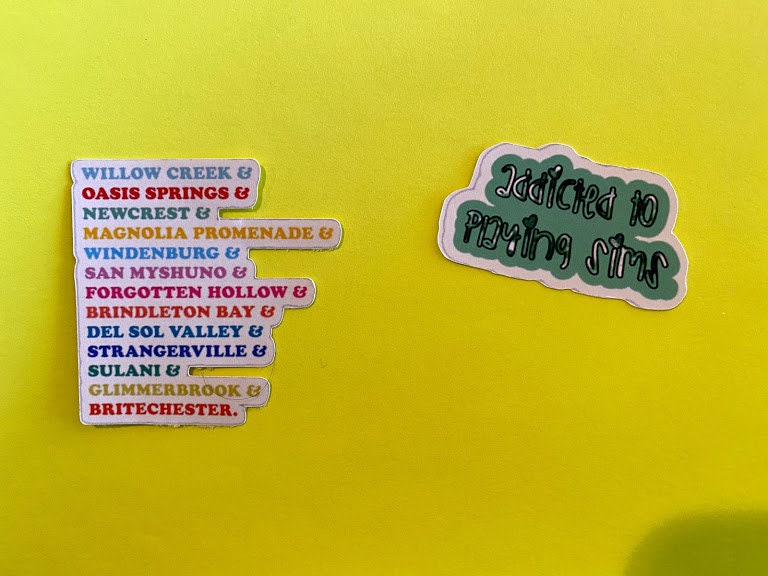 WILLOW CREEK &
OASIS SPRINGS &
NEWCREST &
MAGNOLIA PROMENADE &
WINDENBURG &
SAN MYSHUNO &
FORGOTTEN HOLLOW &
BRINDLETON BAY &
DEL SOL VALLEY &
STRANGERVILLE &
SULANI &
GLIMMERBROOK &
BRITECHESTER.
addicted to
playing sims